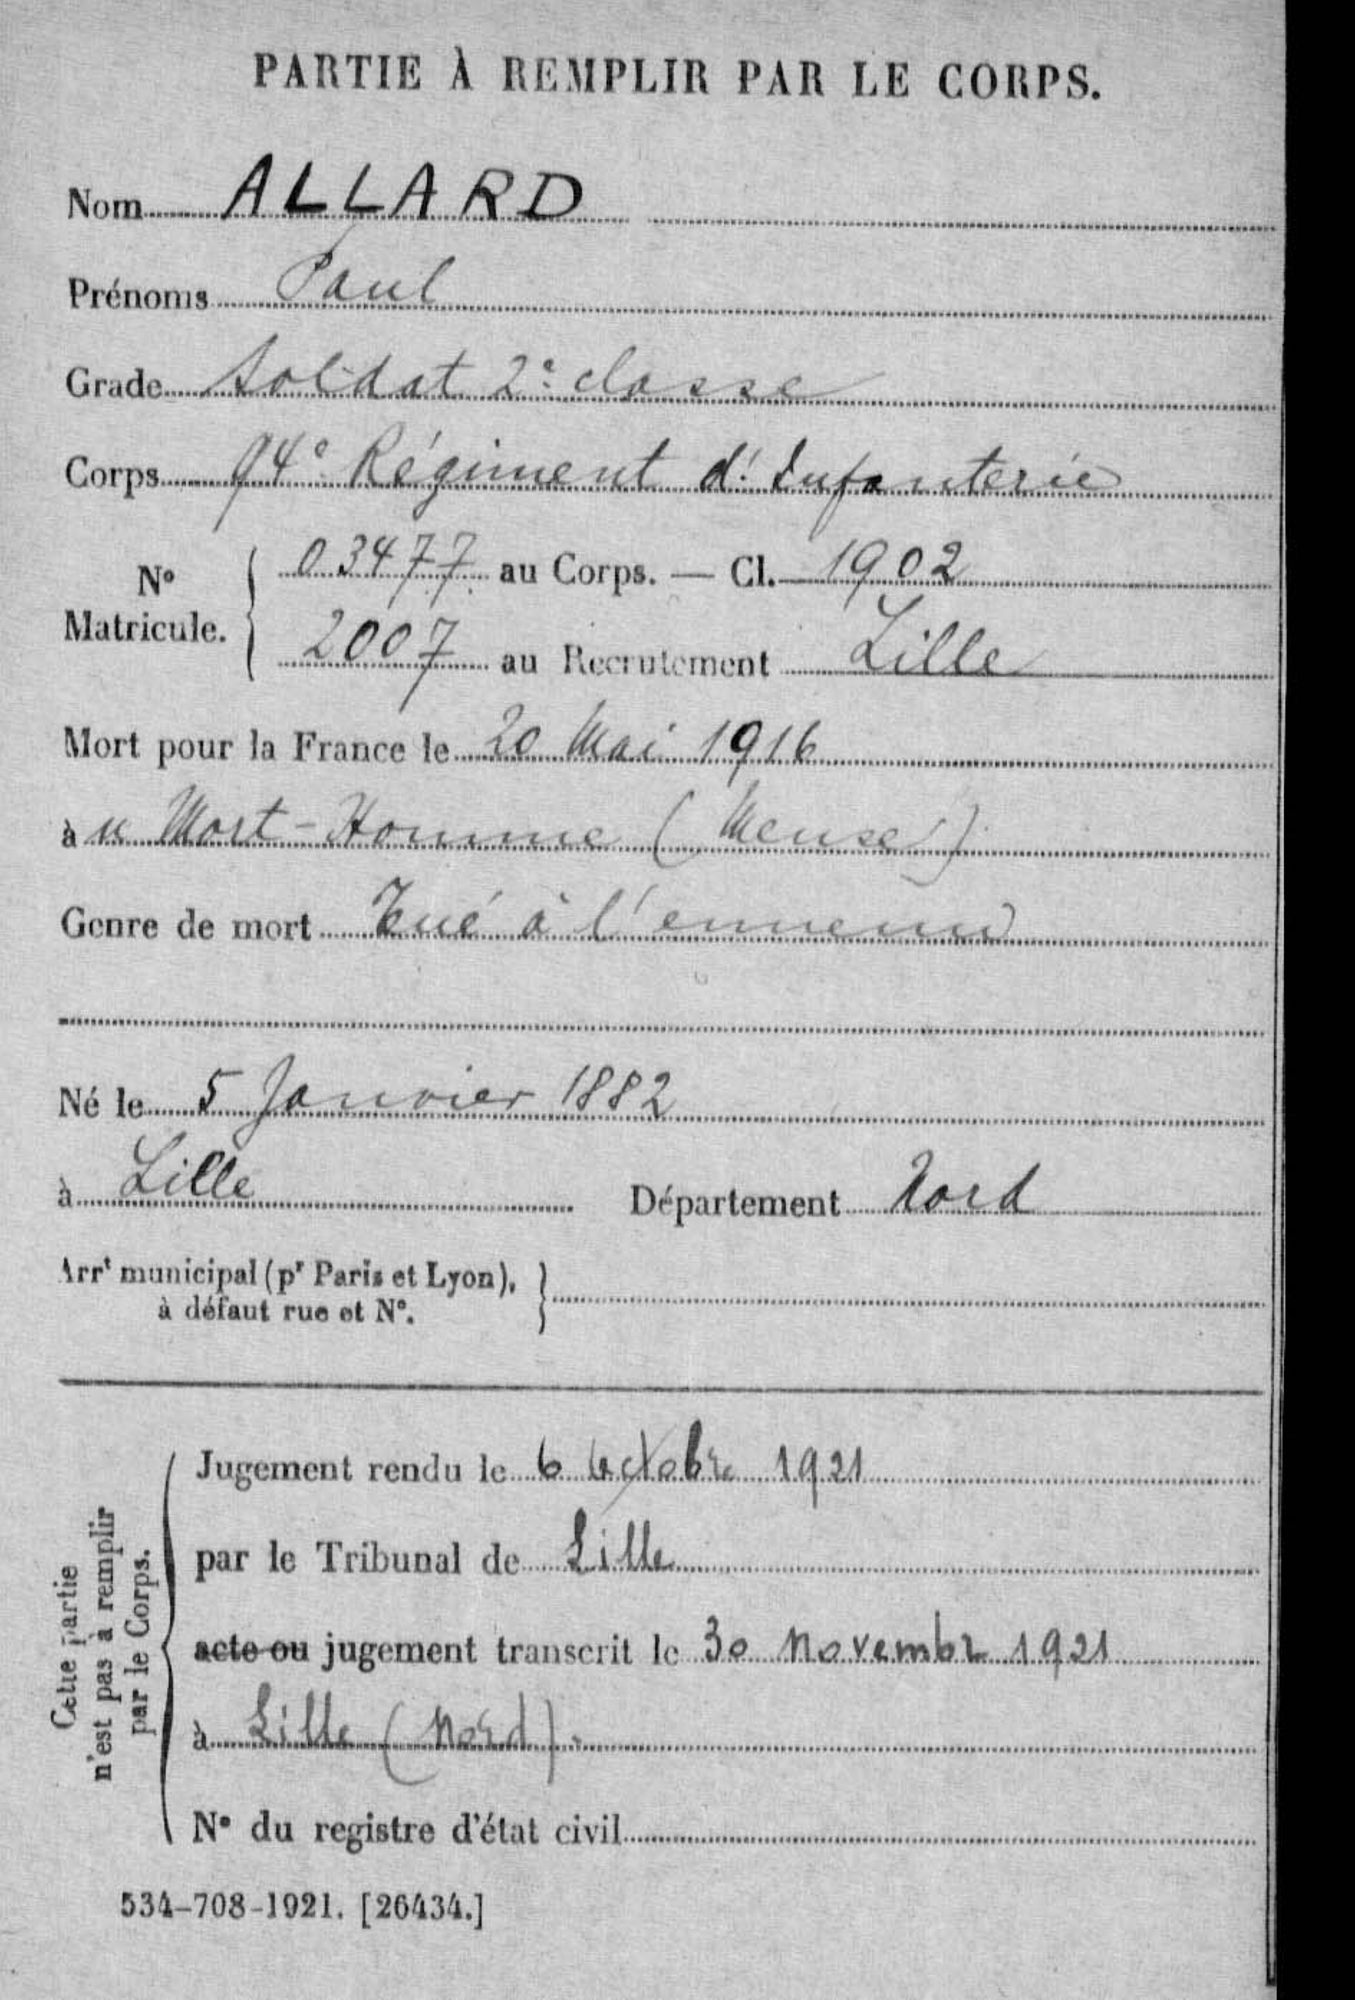 PARTIE À REMPLIR PAR LE CORPS.
Nom ALLARD
Prénoms Paul
Grade Soldat 2e classe
Corps 94e Régiment d'Infanterie
No Matricule. { 03477 au Corps. — Cl. 1902
2007 au Recrutement Lille
Mort pour la France le 20 Mai 1916
à u Mort-Homme (Meuse)
Genre de mort Tué à l'ennemi
Né le 5 Janvier 1882
à Lille Département Nord
Arrt municipal (pr Paris et Lyon), }
à défaut rue et No.
Cette partie
n'est pas à remplir
par le Corps.
Jugement rendu le 6 Octobre 1921
par le Tribunal de Lille
acte ou jugement transcrit le 30 Novembre 1921
à Lille (Nord).
No du registre d'état civil
534-708-1921. [26434.]